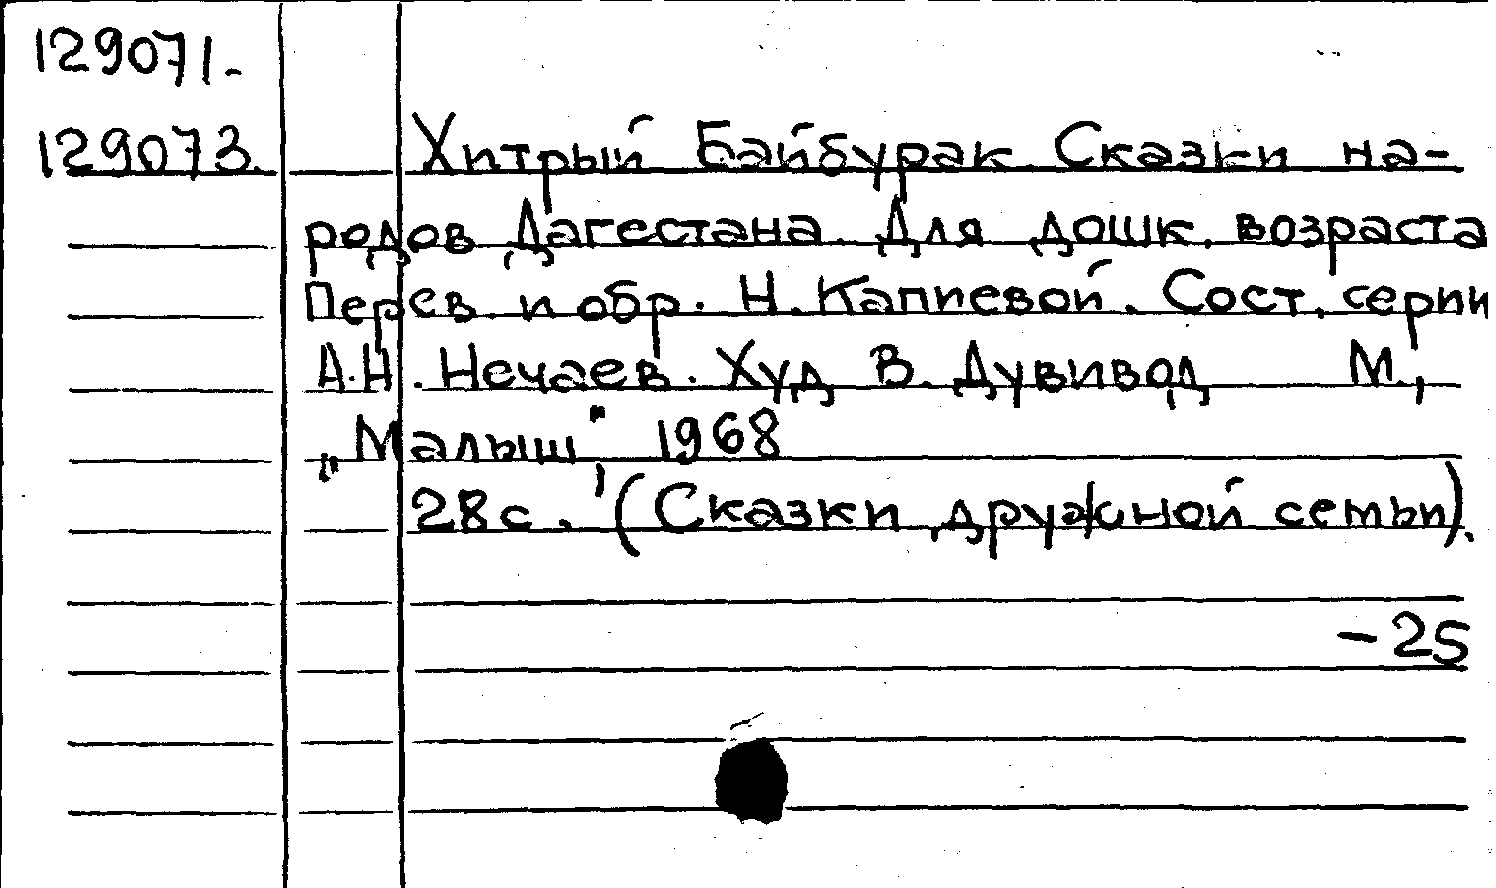 129071-
129073. Хитрый Байбурак. Сказки на-
родов Дагестана. Для дошк. возраста
Перев. и обр. Н. Капиевой. Сост. серии
А.Н. Нечаев. Худ В. Дувидов М.,
„Малыш", 1968
28 с. (Сказки дружной семьи).
-25